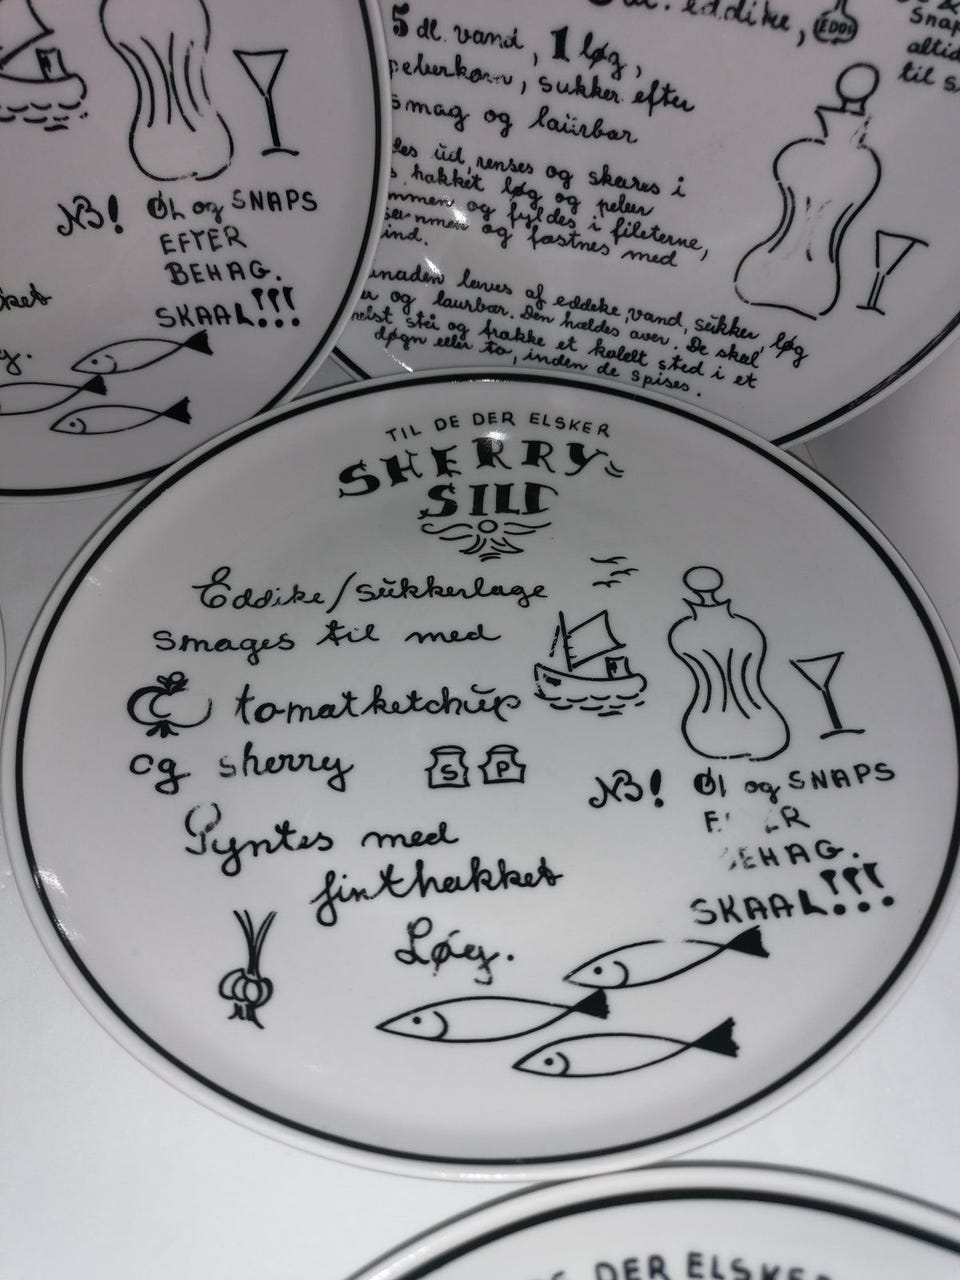 NB! ØL og SNAPS
EFTER
BEHAG.
SKAAL!!!
eddike,
5 dl. vand, 1 løg,
peberkorn, sukker efter
smag og laurbær
ud, renses og skæres i
hakket løg og peber
og fyldes i fileterne,
og fæstnes med
laves af eddike, vand, sukker, løg
og laurbær. Den hældes over. De skal
og trække et koldt sted i et
døgn eller to, inden de spises.
altid
til
TIL DE DER ELSKER
SHERRY-
SILD
Eddike/sukkerlage
smages til med
tomatketchup
og sherry
S P
Pyntes med
finthakket
Løg.
NB! Øl og SNAPS
BEHAG.
SKAAL!!!
DER ELSKER